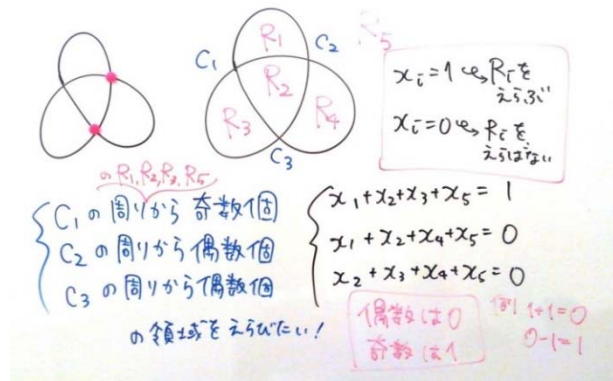 R5
R1
C1 C2
R2
R3 R4
C3
xi=1 ↔ Riを
えらぶ
xi=0 ↔ Riを
えらばない
のR1,R2,R3,R5
C1の周りから奇数個
C2の周りから偶数個
C3の周りから偶数個
の領域をえらびたい!
x1+x2+x3+x5=1
x1+x2+x4+x5=0
x2+x3+x4+x5=0
偶数は0
奇数は1
例 1+1=0
0-1=1